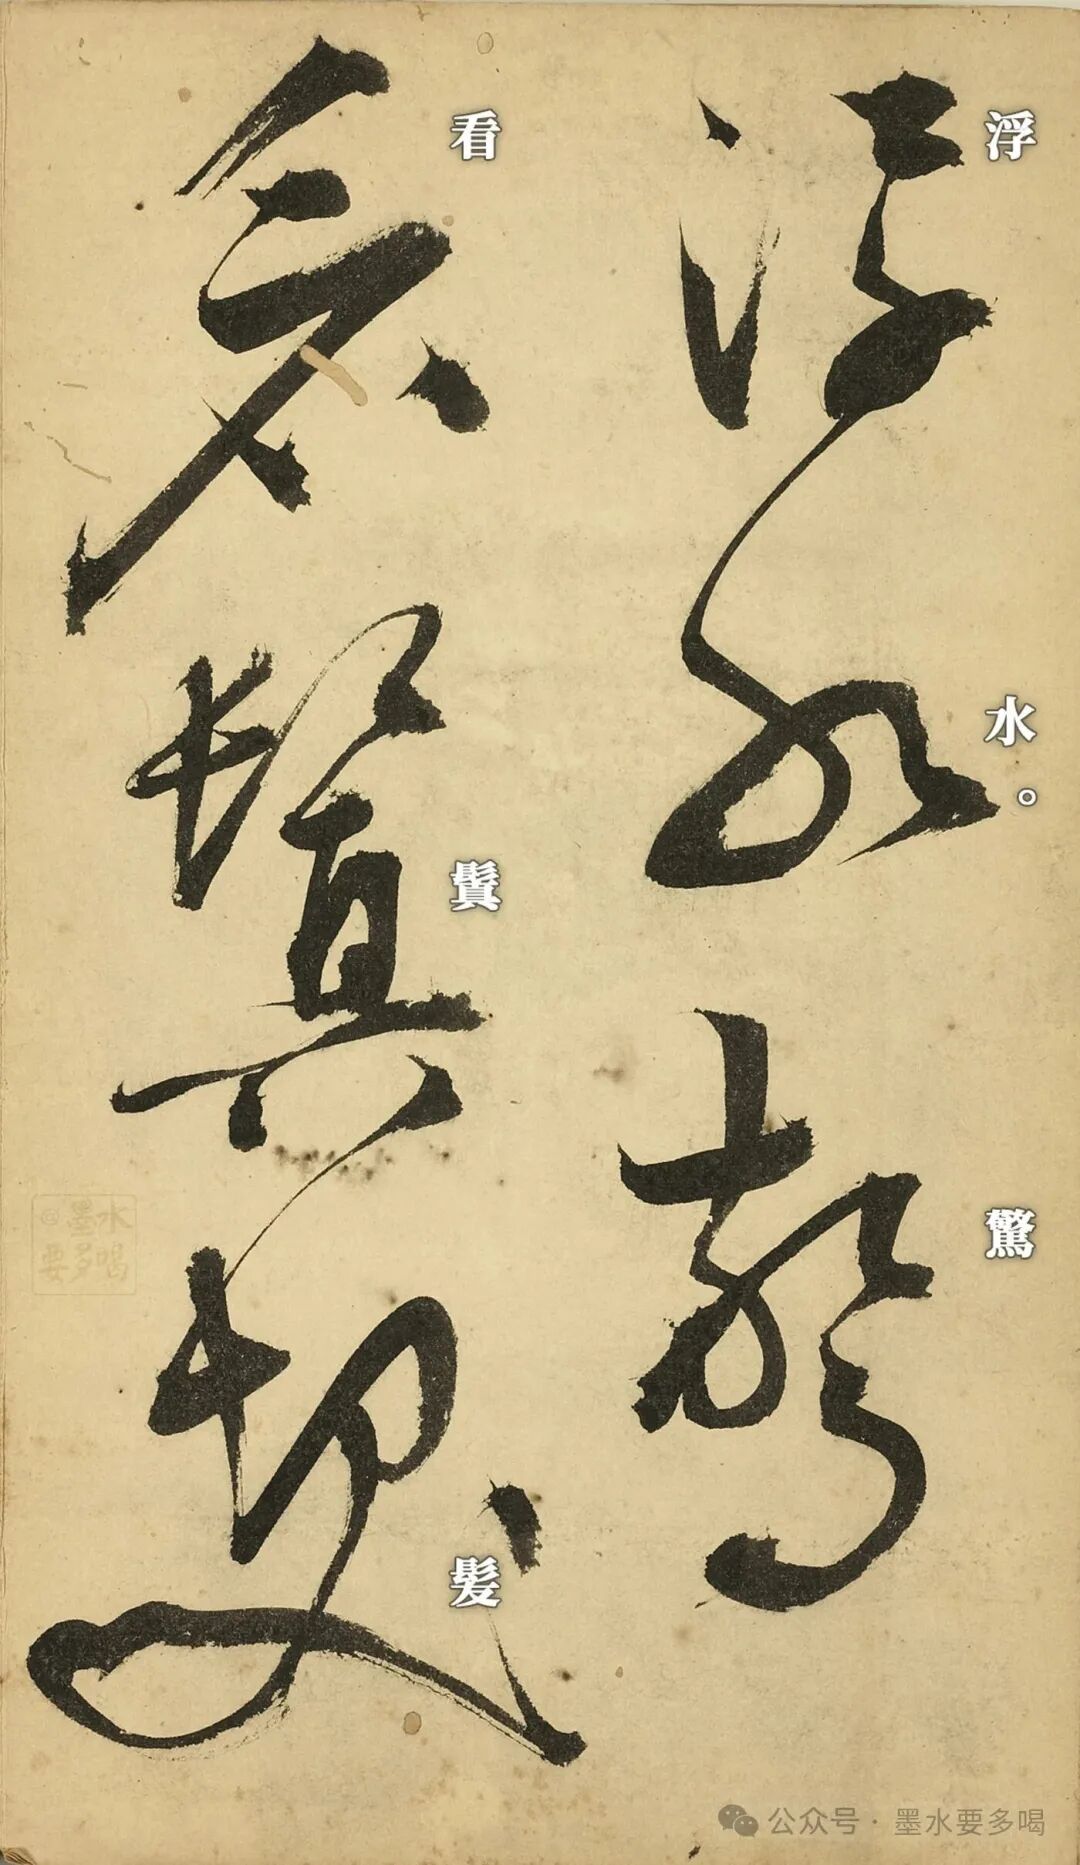 浮水。驚
看鬂髮
@墨水
要多喝
公众号·墨水要多喝